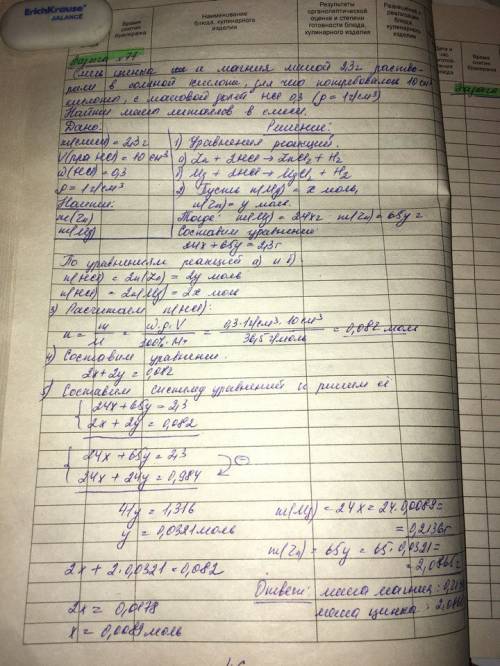 ErichKrause
JALANCE
Время снятия бракеража
Наименование блюда, кулинарного изделия
Результаты органолептической оценки и степени готовности блюда, кулинарного изделия
Разрешение к реализации блюда, кулинарного изделия
Задача
Смесь цинка и магния массой 2,3г раство-
рили в соляной кислоте, для чего потребовалось 10 см³
кислоты, с массовой долей HCl 0,3 (ρ = 1г/см³)
Найти массы металлов в смеси.
Дано: Решение:
m(смеси) = 2,3 г 1) Уравнения реакций.
V(р-ра HCl) = 10 см³ а) Zn + 2HCl → ZnCl₂ + H₂
ω(HCl) = 0,3 б) Mg + 2HCl → MgCl₂ + H₂
ρ = 1 г/см³ 2) Пусть n(Mg) = x моль,
Найти: n(Zn) = y моль.
m(Zn) Тогда: m(Mg) = 24x г m(Zn) = 65y г
m(Mg) Составим уравнение:
24x + 65y = 2,3г
По уравнениям реакций а) и б).
n(HCl) = 2n(Zn) = 2y моль
n(HCl) = 2n(Mg) = 2x моль
3) Рассчитаем n(HCl):
n = m/M = ω·ρ·V/100%·M = 0,3·1г/см³·10 см³/36,5 г/моль = 0,082 моль
4) Составим уравнение.
2x + 2y = 0,082
5) Составим систему уравнений и решим её
24x + 65y = 2,3
2x + 2y = 0,082
24x + 65y = 2,3
24x + 24y = 0,984
41y = 1,316
y = 0,0321 моль
2x + 2·0,0321 = 0,082
2x = 0,0178
x = 0,0089 моль
m(Mg) = 24x = 24·0,0089 =
= 0,2136г
m(Zn) = 65y = 65·0,0321 =
= 2,0865г
Ответ: масса магния:
масса цинка: